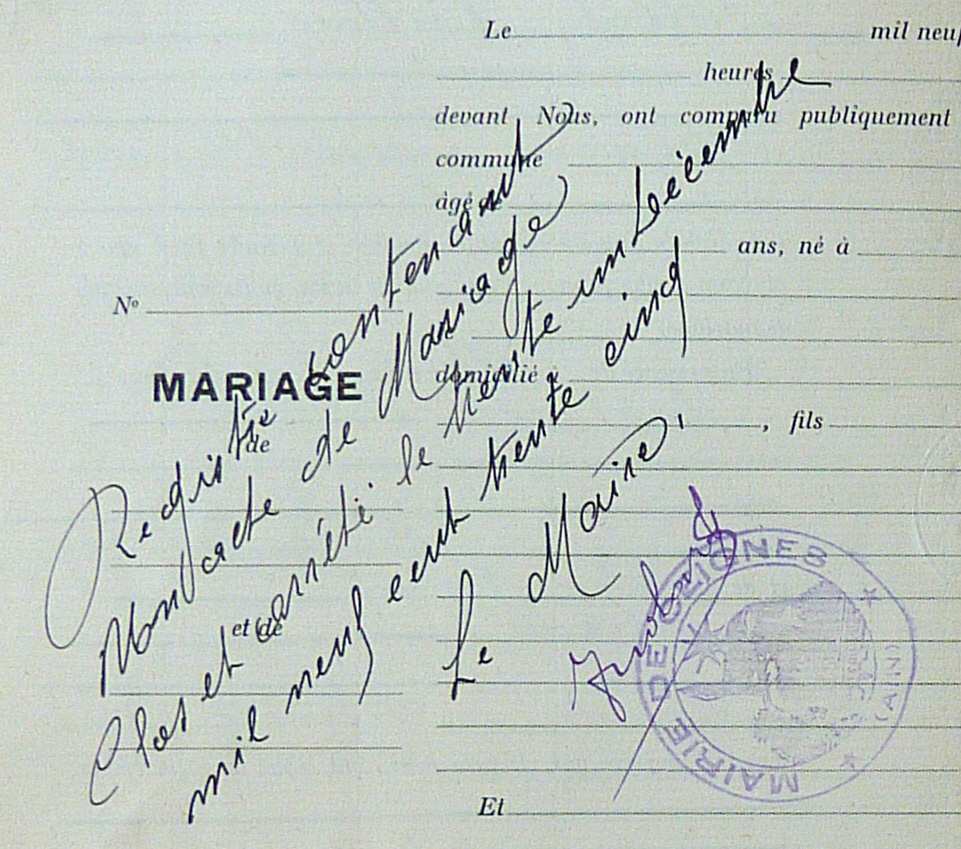 Le mil neuf
heures
devant Nous, ont comparu publiquement
commune
âgé de
ans, né à
N°
MARIAGE
domicilié à
de
, fils
et de
Et
Registre contenant
acte de Mariage
Clos et arrêté le trente un Décembre
mil neuf cent trente cinq
Le Maire,
MAIRIE DE CEIGNES
(AIN)